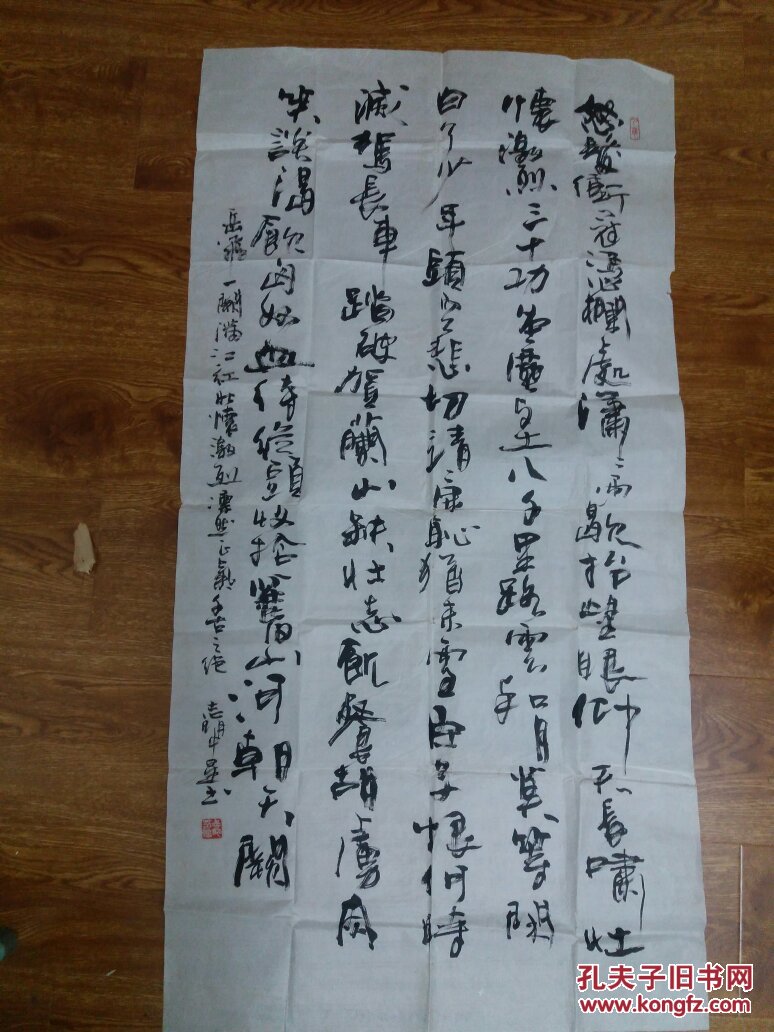 怒髮衝冠憑欄處瀟瀟雨歇抬望眼仰天長嘯壯
懷激烈三十功名塵與土八千里路雲和月莫等閑
白了少年頭空悲切靖康恥猶未雪臣子恨何時
滅駕長車踏破賀蘭山缺壯志飢餐胡虜肉
笑談渴飲匈奴血待從頭收拾舊山河朝天闕
岳飛一闋滿江紅壯懷激烈凜然正氣千古之絕 志明
孔夫子旧书网
www.kongfz.com